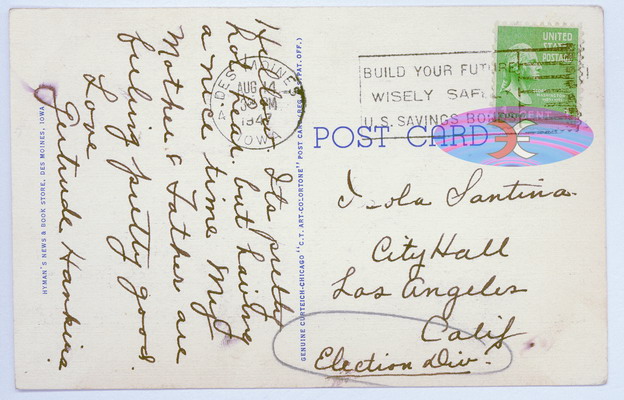 Its pretty
hot here but having
a nice time My
Mother & Father are
feeling pretty good.
Love
Gertrude Hankins
HYMAN'S NEWS & BOOK STORE, DES MOINES, IOWA
GENUINE CURTEICH-CHICAGO "C.T. ART-COLORTONE" POST CARD (REG. U.S. PAT. OFF.)
DES MOINES
AUG 14
PM
1947
IOWA
BUILD YOUR FUTURE
WISELY SAFELY
U.S. SAVINGS BONDS
UNITED
STATES
POSTAGE
1 CENT
POST CARD
Santina
City Hall
Los Angeles
Calif
Election Div.